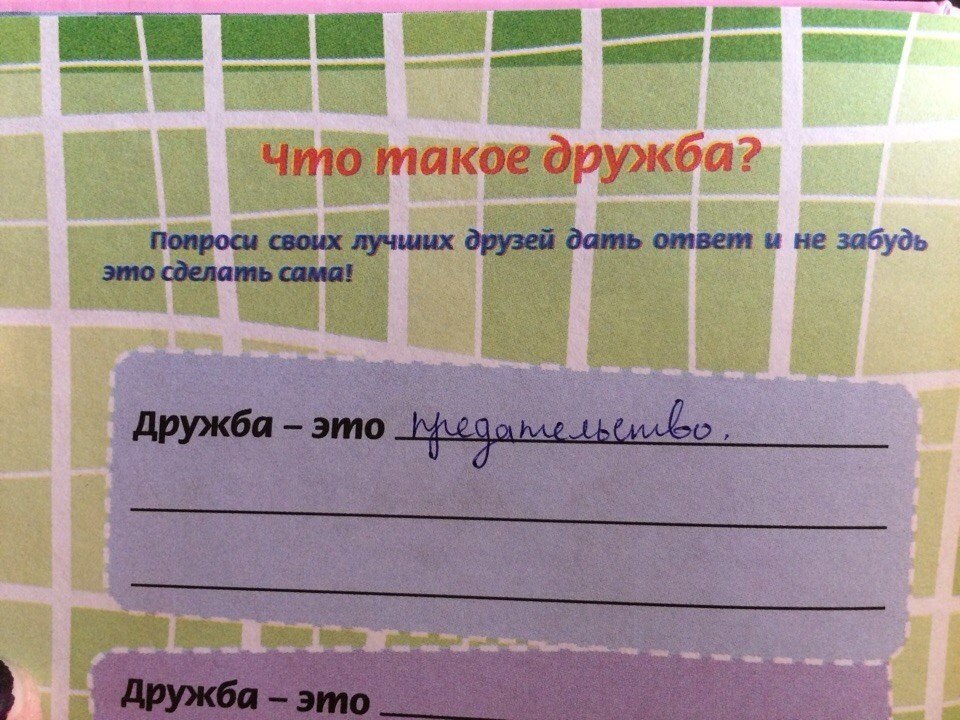 Что такое дружба?
Попроси своих лучших друзей дать ответ и не забудь
это сделать сама!
Дружба – это предательство.
Дружба – это